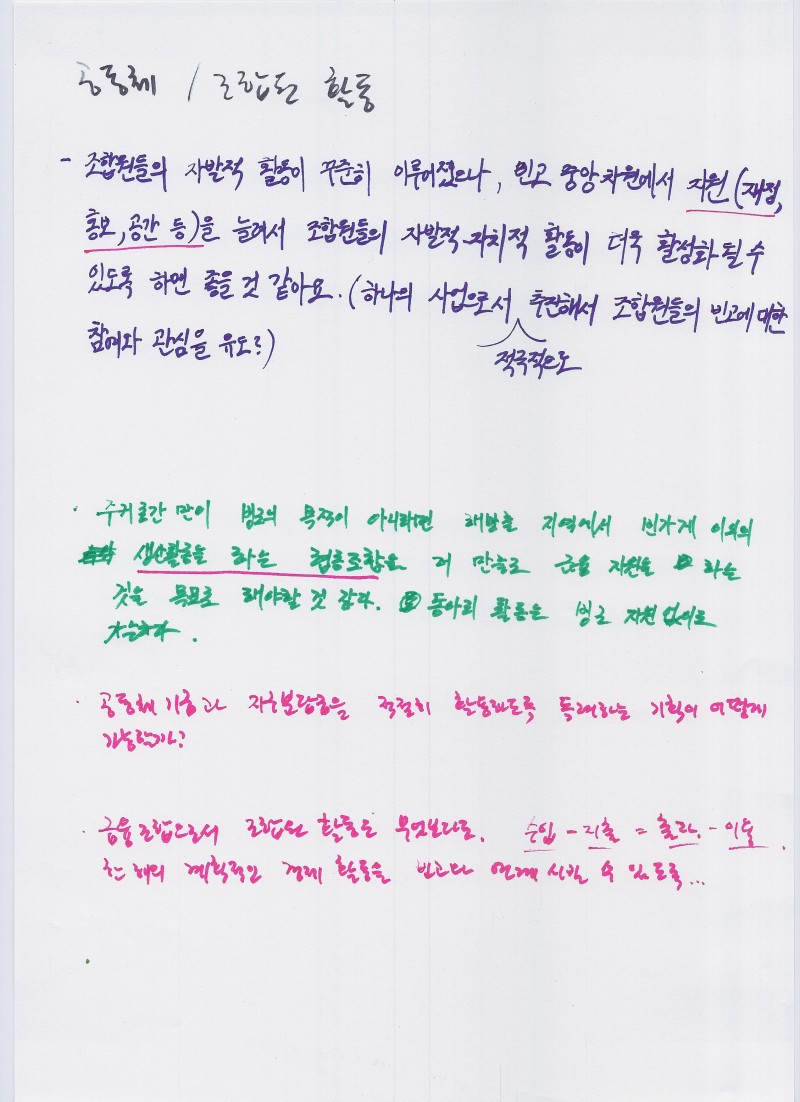 공동체 / 조합원 활동
- 조합원들의 자발적 활동이 꾸준히 이루어졌으나, 빈고 중앙차원에서 지원 (재정,
홍보, 공간 등)을 늘려서 조합원들의 자발적·자치적 활동이 더욱 활성화 될 수
있도록 하면 좋을 것 같아요. (하나의 사업으로서 추진해서 조합원들의 빈고에 대한
적극적으로
참여와 관심을 유도?)
· 주거공간 만이 빈고의 목적이 아니라면 해방촌 지역에서 빈가게 이외의
생산활동을 하는 협동조합을 더 만들고 금융 지원을 하는
것을 목표로 해야할 것 같다. 동아리 활동은 빈고 지원 없이도
가능하다.
· 공동체 기금과 지구분담금을 적절히 활동하도록 독려하는 기획이 어떻게
가능할까?
· 금융조합으로서 조합원 활동은 무엇보다도. 수입 - 지출 = 출자 - 이용.
한 해의 계획적인 경제 활동을 빈고와 연계시킬 수 있도록...